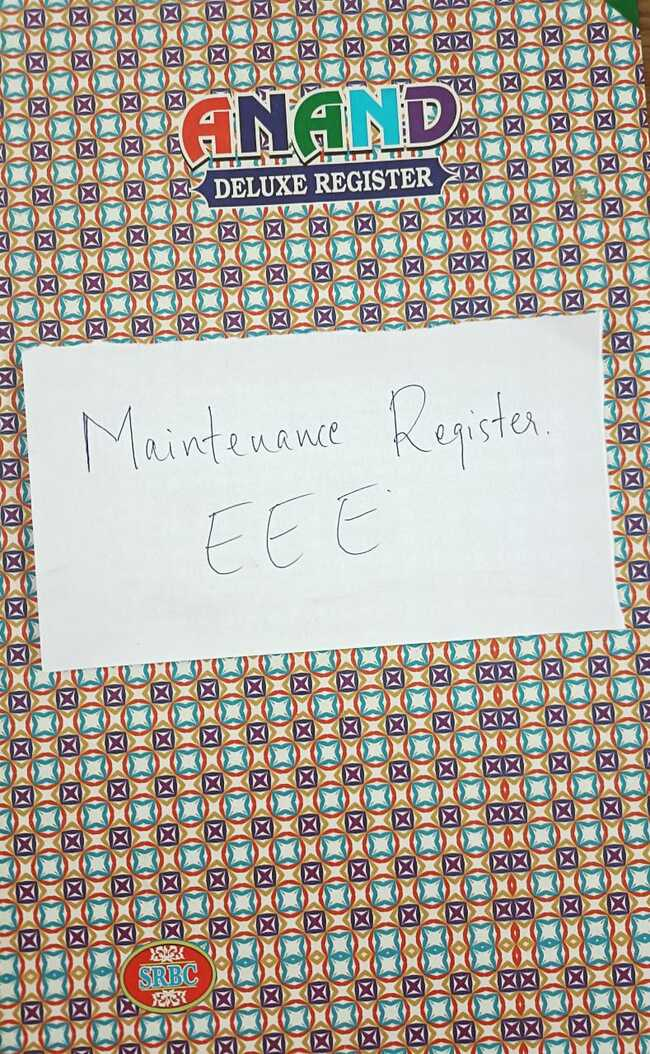 ANAND
DELUXE REGISTER
Maintenance Register.
EEE
SRBC